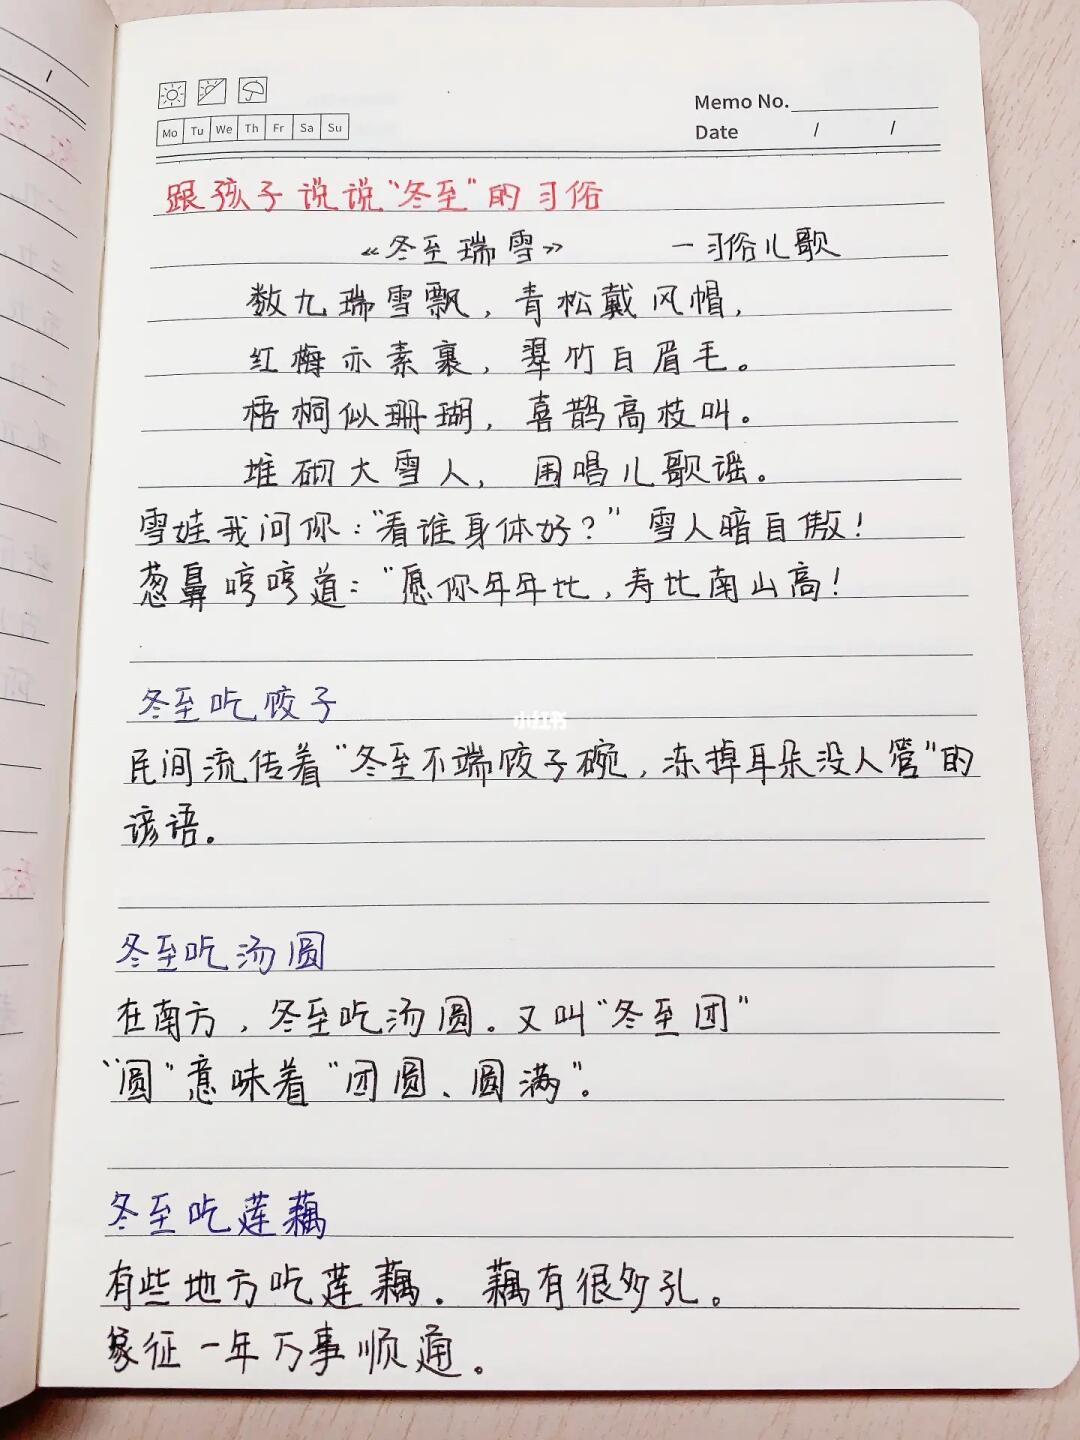 Mo Tu We Th Fr Sa Su
Memo No.
Date / /
跟孩子说说“冬至”的习俗
《冬至瑞雪》 —习俗儿歌
数九瑞雪飘，青松戴风帽，
红梅亦素裹，翠竹白眉毛。
梧桐似珊瑚，喜鹊高枝叫。
堆砌大雪人，围唱儿歌谣。
雪娃我问你：“看谁身体好？” 雪人暗自傲！
葱鼻哼哼道：“愿你年年比，寿比南山高！
冬至吃饺子
小红书
民间流传着“冬至不端饺子碗，冻掉耳朵没人管”的
谚语。
冬至吃汤圆
在南方，冬至吃汤圆。又叫“冬至团”
“圆”意味着“团圆、圆满”。
冬至吃莲藕
有些地方吃莲藕．藕有很多孔。
象征一年万事顺通。